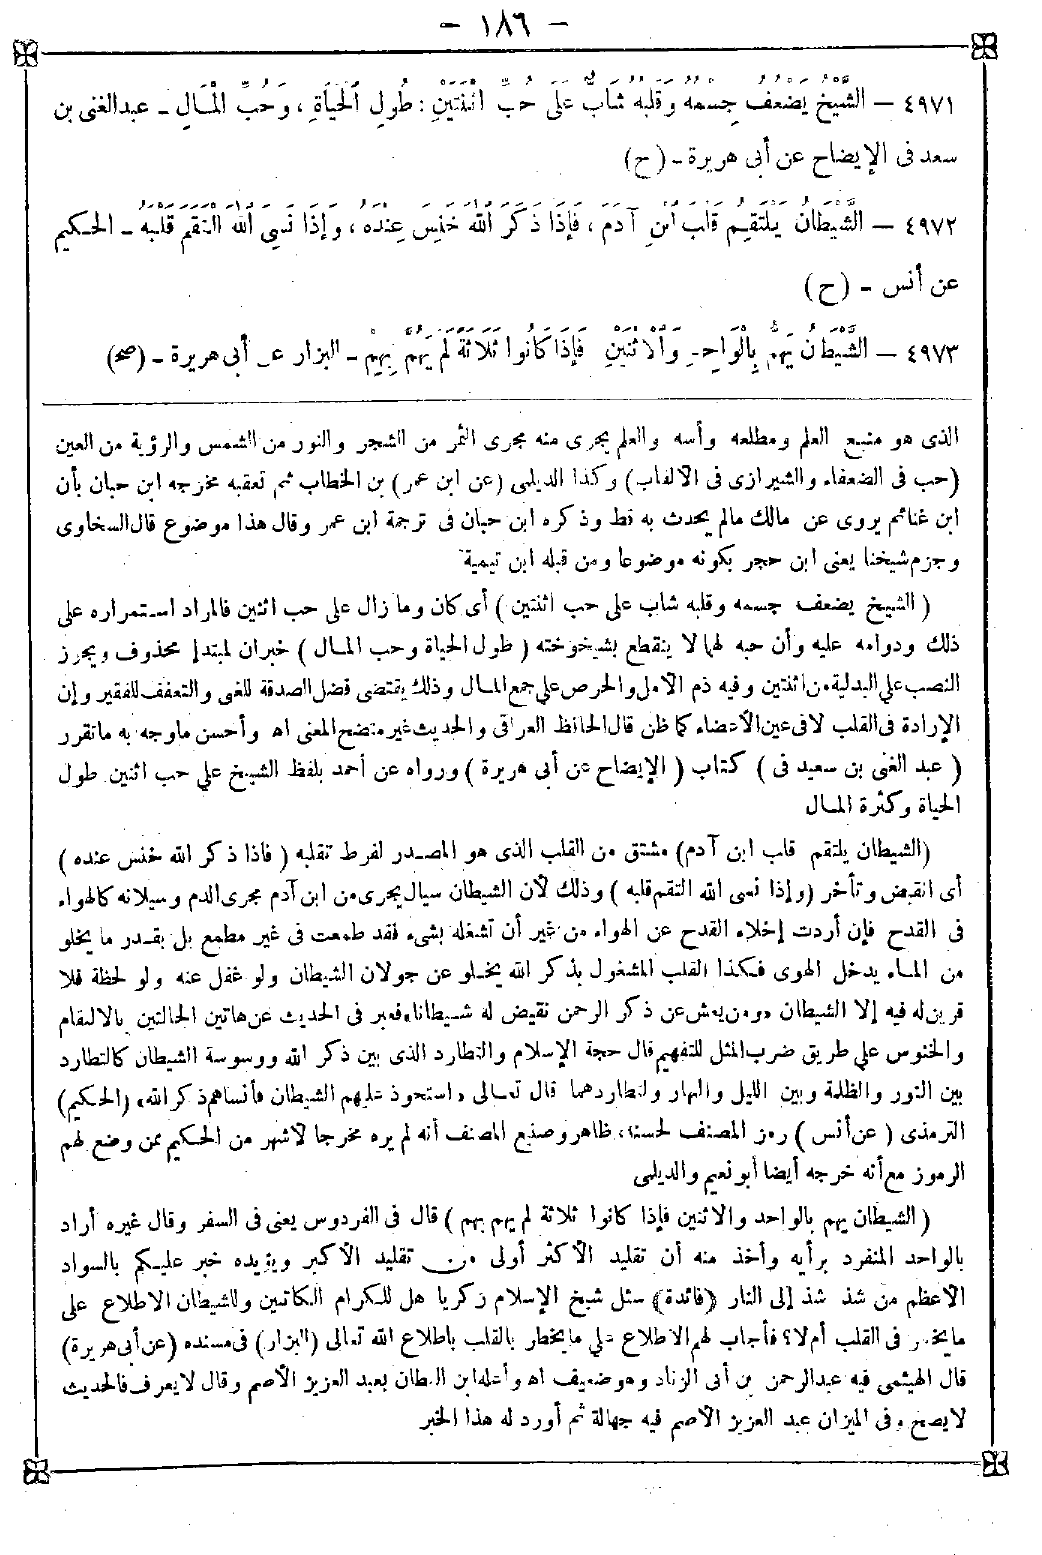 - ١٨٦ -
٤٩٧١ - الشَّيْخُ يَضْعُفُ جِسْمُهُ وَقَلْبُهُ شَابٌّ عَلَى حُبِّ اثْنَتَيْنِ : طُولِ الْحَيَاةِ ، وَحُبِّ الْمَالِ - عبدالغنى بن
سعد فى الإيضاح عن أبى هريرة - (ح)
٤٩٧٢ - الشَّيْطَانُ يَلْتَقِمُ قَلْبَ ابْنِ آدَمَ ، فَإِذَا ذَكَرَ اللهَ خَنَسَ عِنْدَهُ ، وَإِذَا نَسِىَ اللهَ الْتَقَمَ قَلْبَهُ - الحكيم
عن أنس - (ح)
٤٩٧٣ - الشَّيْطَانُ يَهُمُّ بِالْوَاحِدِ وَالاْثْنَيْنِ فَإِذَا كَانُوا ثَلاَثَةً لَمْ يَهُمَّ بِهِمْ - البزار عن أبى هريرة - (صح)
الذى هو منبع العلم ومطلعه وأسه والعلم يجرى منه مجرى الثمر من الشجر والنور من الشمس والرؤية من العين
(حب فى الضعفاء والشيرازى فى الالقاب) وكذا الديلمى (عن ابن عمر) بن الخطاب ثم تعقبه مخرجه ابن حبان بأن
ابن غنائم يروى عن مالك مالم يحدث به قط وذكره ابن حبان فى ترجمة ابن عمر وقال هذا موضوع قال السخاوى
وجزم شيخنا يعنى ابن حجر بكونه موضوعا ومن قبله ابن تيمية
( الشيخ يضعف جسمه وقلبه شاب على حب اثنتين ) أى كان وما زال على حب اثنين فالمراد استمراره على
ذلك ودوامه عليه وأن حبه لهما لا ينقطع بشيخوخته ( طول الحياة وحب المال ) خبران لمبتدإ محذوف ويجوز
النصب على البدلية من اثنتين وفيه ذم الأمل والحرص على جمع المال وذلك يقتضى فضل الصدقة للغنى والتعفف للفقير وإن
الإرادة فى القلب لا فى عين الأعضاء كما ظن قال الحافظ العراقى والحديث غير متضح المعنى اه وأحسن ماوجه به ماتقرر
( عبد الغنى بن سعيد فى ) كتاب ( الإيضاح عن أبى هريرة ) ورواه عن أحمد بلفظ الشيخ على حب اثنين طول
الحياة وكثرة المال
(الشيطان يلتقم قلب ابن آدم) مشتق من القلب الذى هو المصدر لفرط تقلبه ( فاذا ذكر الله خنس عنده )
أى انقبض وتأخر (وإذا نسى الله التقم قلبه ) وذلك لأن الشيطان سيال يجرى من ابن آدم مجرى الدم وسيلانه كالهواء
فى القدح فإن أردت إخلاء القدح عن الهواء من غير أن تشغله بشىء فقد طمعت فى غير مطمع بل بقدر ما يخلو
من الماء يدخل الهوى فكذا القلب المشغول بذكر الله يخلو عن جولان الشيطان ولو غفل عنه ولو لحظة فلا
قرين له فيه إلا الشيطان «ومن يعش عن ذكر الرحمن نقيض له شيطانا» فعبر فى الحديث عن هاتين الحالتين بالالتقام
والخنوس على طريق ضرب المثل للتفهيم قال حجة الإسلام والتطارد الذى بين ذكر الله ووسوسة الشيطان كالتطارد
بين النور والظلمة وبين الليل والنهار ولتطاردهما قال تعالى «استحوذ عليهم الشيطان فأنساهم ذكر الله» (الحكيم)
الترمذى ( عن أنس ) رمز المصنف لحسنه، ظاهر وصنيع المصنف أنه لم يره مخرجا لأشهر من الحكيم ممن وضع لهم
الرموز مع أنه خرجه أيضا أبو نعيم والديلمى
( الشيطان يهم بالواحد والاثنين فإذا كانوا ثلاثة لم يهم بهم ) قال فى الفردوس يعنى فى السفر وقال غيره أراد
بالواحد المنفرد برأيه وأخذ منه أن تقليد الأكثر أولى من تقليد الأكبر ويؤيده خبر عليكم بالسواد
الأعظم من شذ شذ إلى النار (فائدة) سئل شيخ الإسلام زكريا هل للكرام الكاتبين وللشيطان الاطلاع على
ما يخطر فى القلب أم لا؟ فأجاب لهم الاطلاع على ما يخطر بالقلب باطلاع الله تعالى (البزار) فى مسنده (عن أبى هريرة)
قال الهيثمى فيه عبدالرحمن بن أبى الزناد وهو ضعيف اه وأعله ابن القطان بعبد العزيز الأصم وقال لا يعرف فالحديث
لا يصح وفى الميزان عبد العزيز الأصم فيه جهالة ثم أورد له هذا الخبر